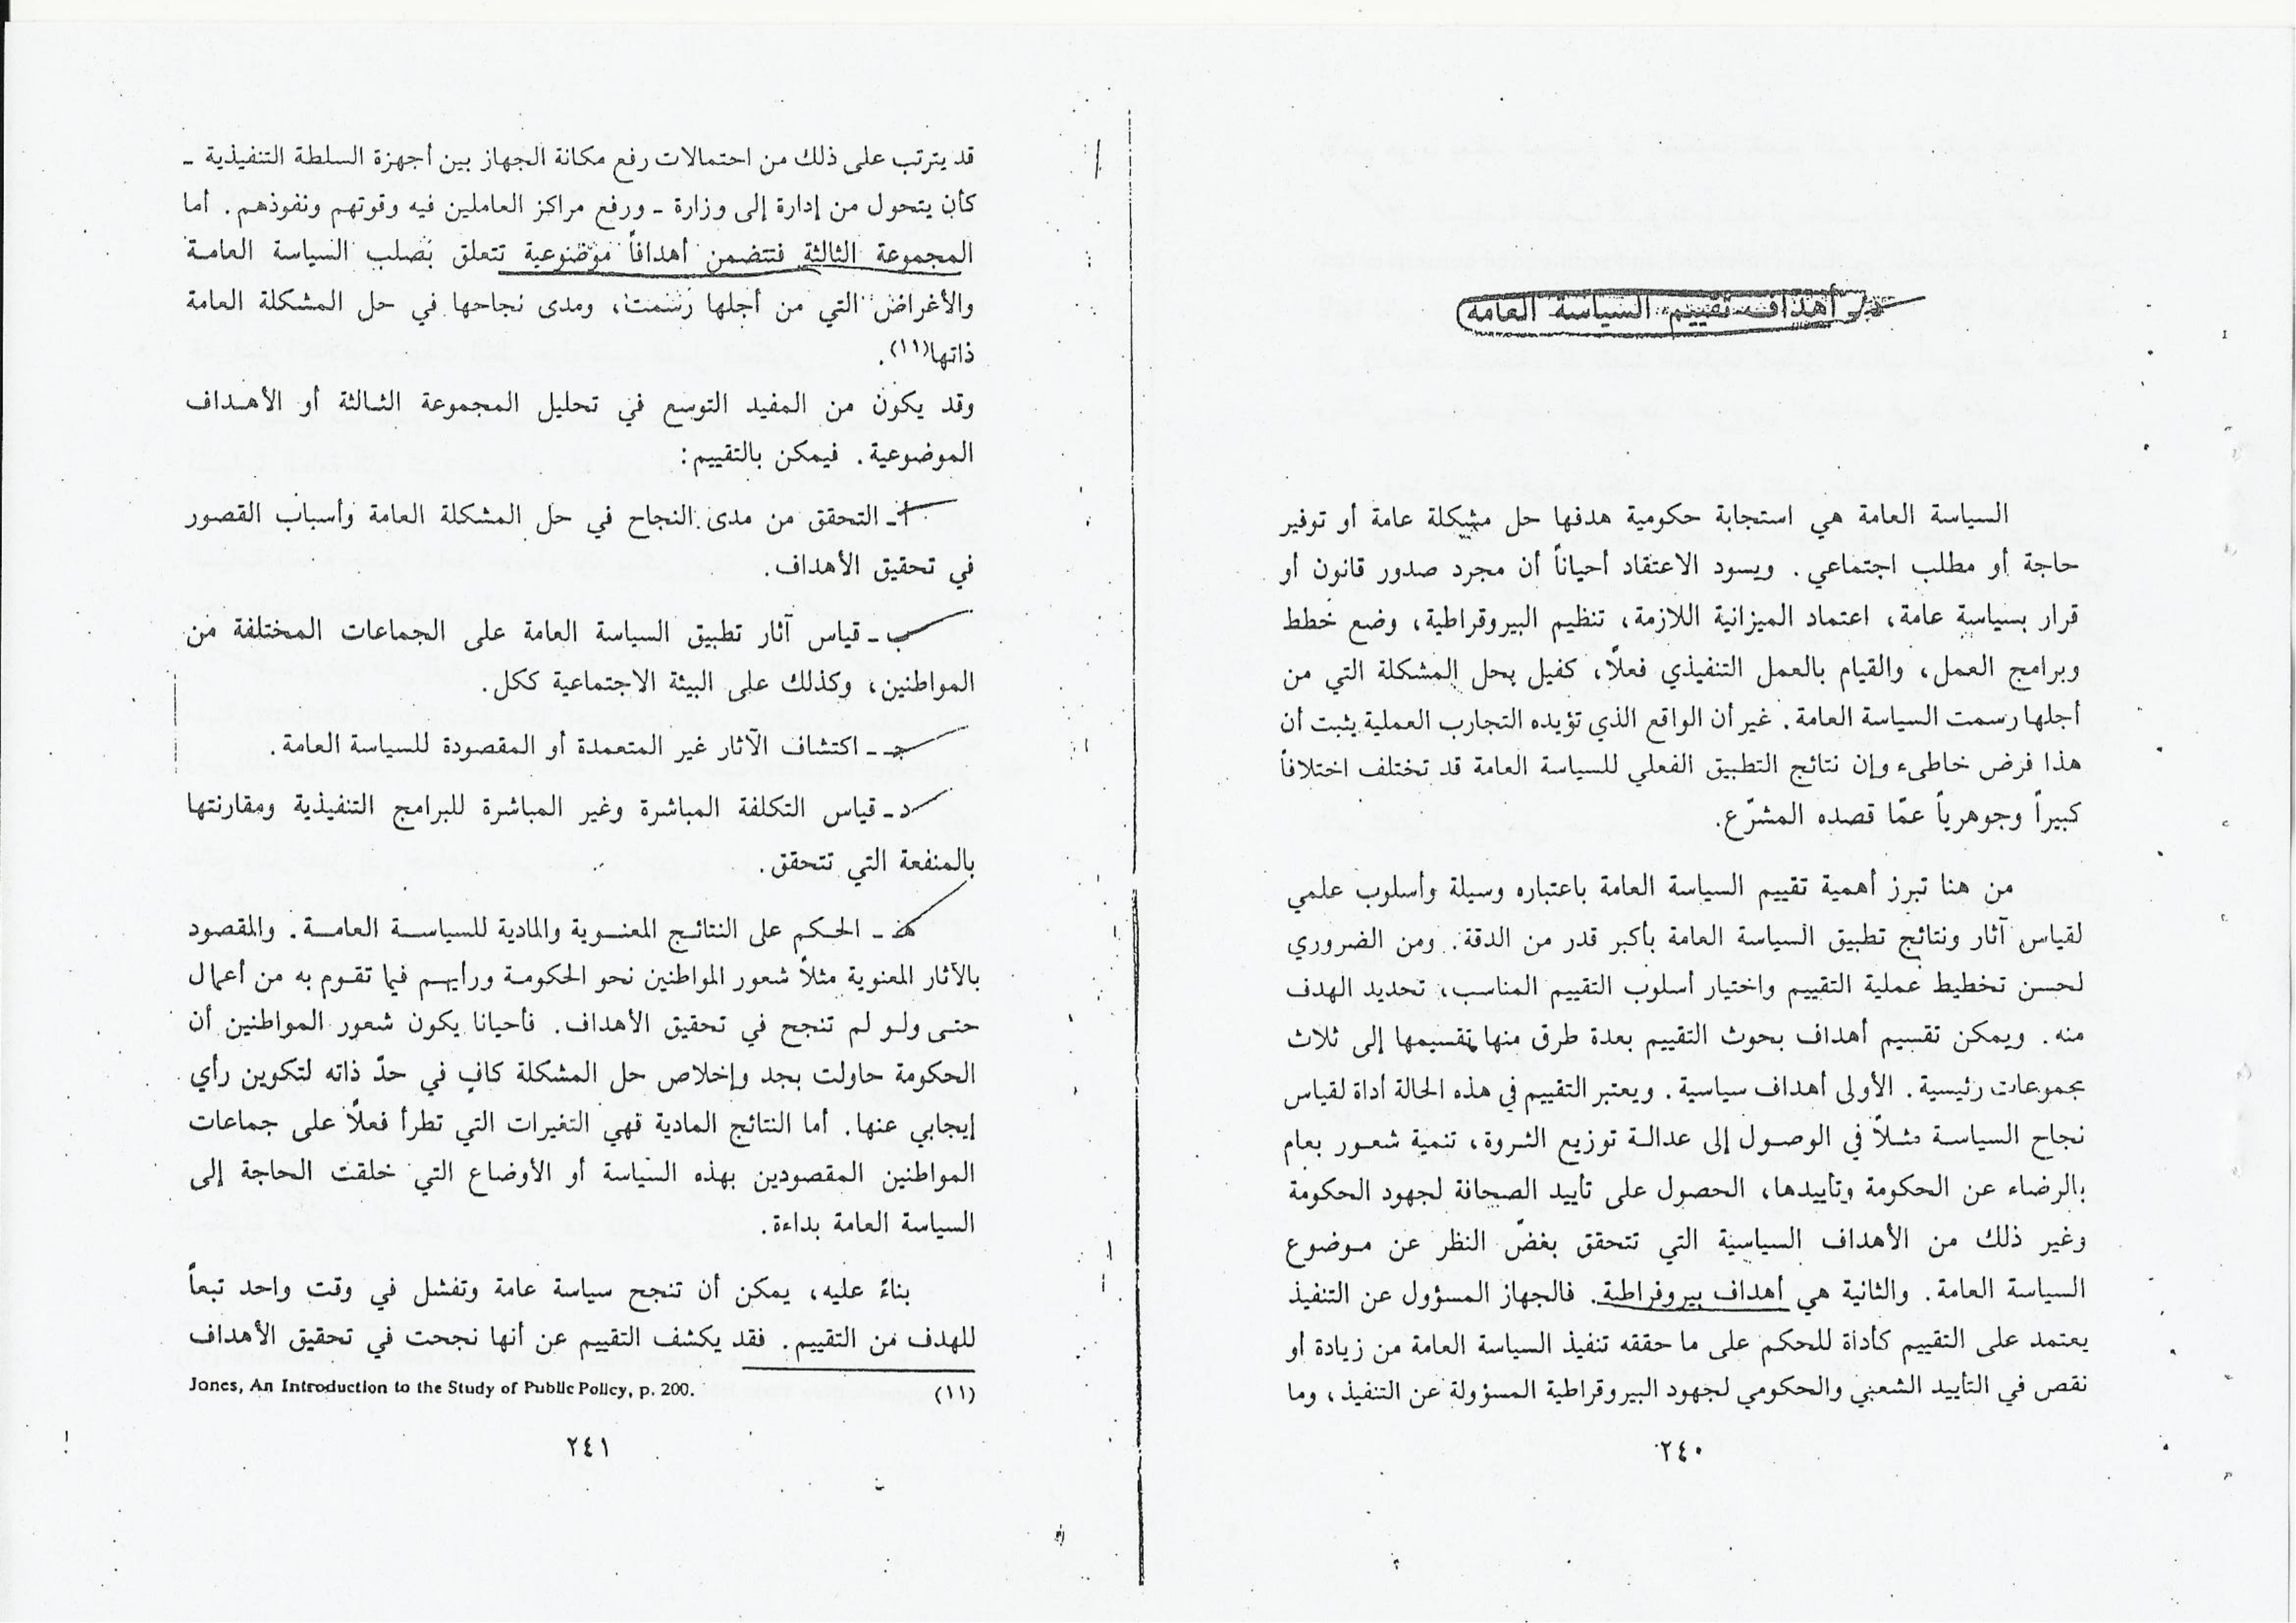 د ـ أهداف تقييم السياسة العامة
السياسة العامة هي استجابة حكومية هدفها حل مشكلة عامة أو توفير
حاجة أو مطلب اجتماعي. ويسود الاعتقاد أحياناً أن مجرد صدور قانون أو
قرار بسياسية عامة، اعتماد الميزانية اللازمة، تنظيم البيروقراطية، وضع خطط
وبرامج العمل، والقيام بالعمل التنفيذي فعلاً، كفيل بحل المشكلة التي من
أجلها رسمت السياسة العامة. غير أن الواقع الذي تؤيده التجارب العملية يثبت أن
هذا فرض خاطىء وإن نتائج التطبيق الفعلي للسياسة العامة قد تختلف اختلافاً
كبيراً وجوهرياً عمّا قصده المشرّع.
من هنا تبرز أهمية تقييم السياسة العامة باعتباره وسيلة وأسلوب علمي
لقياس آثار ونتائج تطبيق السياسة العامة بأكبر قدر من الدقة. ومن الضروري
لحسن تخطيط عملية التقييم واختيار أسلوب التقييم المناسب، تحديد الهدف
منه. ويمكن تقسيم أهداف بحوث التقييم بعدة طرق منها تقسيمها إلى ثلاث
مجموعات رئيسية. الأولى أهداف سياسية. ويعتبر التقييم في هذه الحالة أداة لقياس
نجاح السياسة مثلاً في الوصول إلى عدالة توزيع الثروة، تنمية شعور بعام
بالرضاء عن الحكومة وتأييدها، الحصول على تأييد الصحافة لجهود الحكومة
وغير ذلك من الأهداف السياسية التي تتحقق بغضّ النظر عن موضوع
السياسة العامة. والثانية هي أهداف بيروقراطية. فالجهاز المسؤول عن التنفيذ
يعتمد على التقييم كأداة للحكم على ما حققه تنفيذ السياسة العامة من زيادة أو
نقص في التأييد الشعبي والحكومي لجهود البيروقراطية المسؤولة عن التنفيذ، وما
٢٤٠
قد يترتب على ذلك من احتمالات رفع مكانة الجهاز بين أجهزة السلطة التنفيذية ـ
كأن يتحول من إدارة إلى وزارة ـ ورفع مراكز العاملين فيه وقوتهم ونفوذهم. أما
المجموعة الثالثة فتتضمن أهدافاً موضوعية تتعلق بصلب السياسة العامة
والأغراض التي من أجلها رسمت، ومدى نجاحها في حل المشكلة العامة
ذاتها(١١).
وقد يكون من المفيد التوسع في تحليل المجموعة الثالثة أو الأهداف
الموضوعية. فيمكن بالتقييم:
أ ـ التحقق من مدى النجاح في حل المشكلة العامة وأسباب القصور
في تحقيق الأهداف.
ب ـ قياس آثار تطبيق السياسة العامة على الجماعات المختلفة من
المواطنين، وكذلك على البيئة الاجتماعية ككل.
جـ ـ اكتشاف الآثار غير المتعمدة أو المقصودة للسياسة العامة.
د ـ قياس التكلفة المباشرة وغير المباشرة للبرامج التنفيذية ومقارنتها
بالمنفعة التي تتحقق.
هـ ـ الحكم على النتائج المعنوية والمادية للسياسة العامة. والمقصود
بالآثار المعنوية مثلاً شعور المواطنين نحو الحكومة ورأيهم فيما تقوم به من أعمال
حتى ولو لم تنجح في تحقيق الأهداف. فأحيانا يكون شعور المواطنين أن
الحكومة حاولت بجد وإخلاص حل المشكلة كافٍ في حدّ ذاته لتكوين رأي
إيجابي عنها. أما النتائج المادية فهي التغيرات التي تطرأ فعلاً على جماعات
المواطنين المقصودين بهذه السياسة أو الأوضاع التي خلقت الحاجة إلى
السياسة العامة بداءة.
بناءً عليه، يمكن أن تنجح سياسة عامة وتفشل في وقت واحد تبعاً
للهدف من التقييم. فقد يكشف التقييم عن أنها نجحت في تحقيق الأهداف
(١١) Jones, An Introduction to the Study of Public Policy, p. 200.
٢٤١